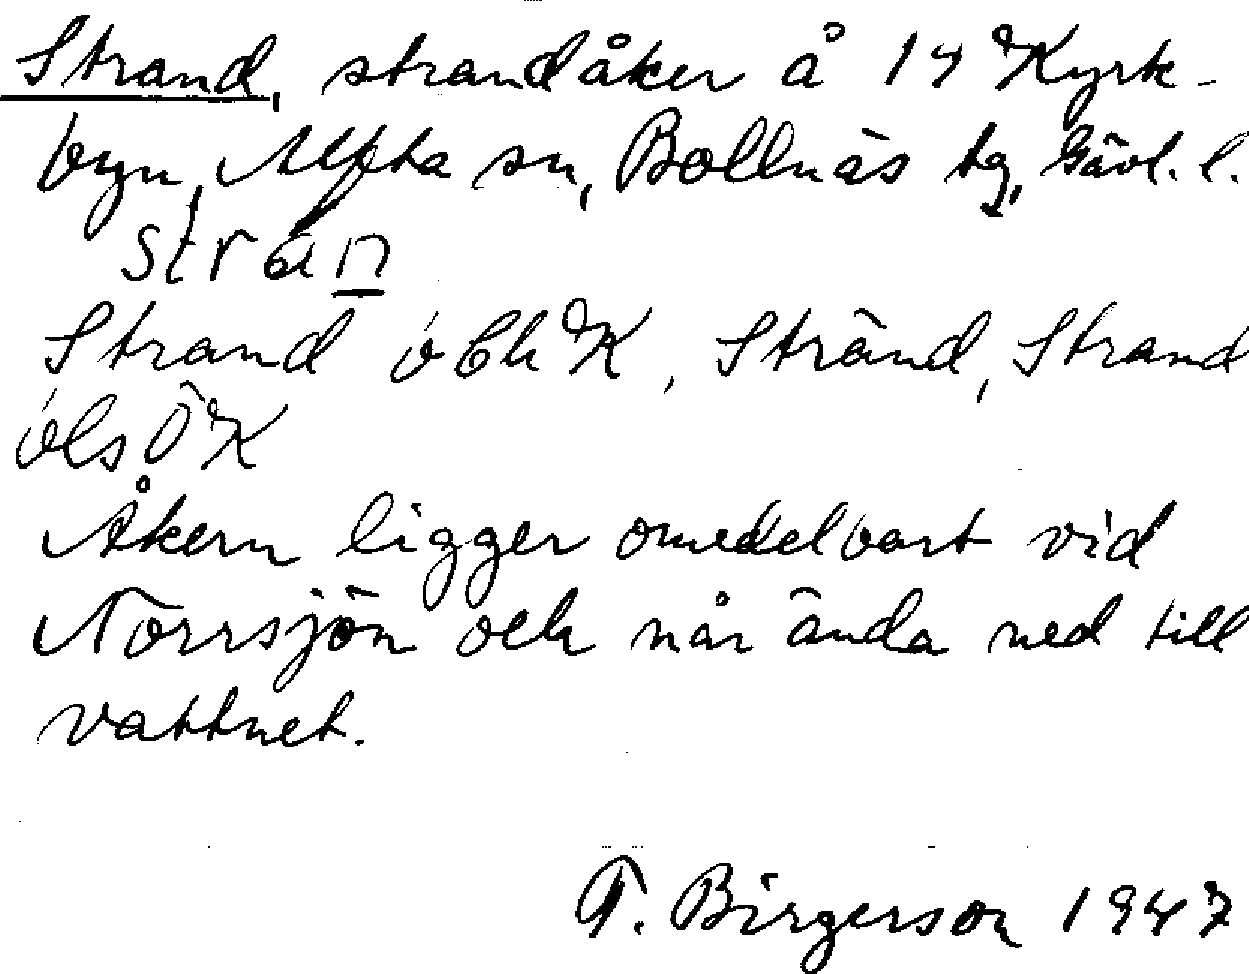 Strand, strandåker å 14 Kyrk-
byn, Alfta sn, Bollnäs tg, Gävl. l.
strán
Strand óbl K, Stränd, Strand
óls Ö K
Åkern ligger omedelbart vid
Norrsjön och når ända ned till
vattnet.
T. Birgerson 1947